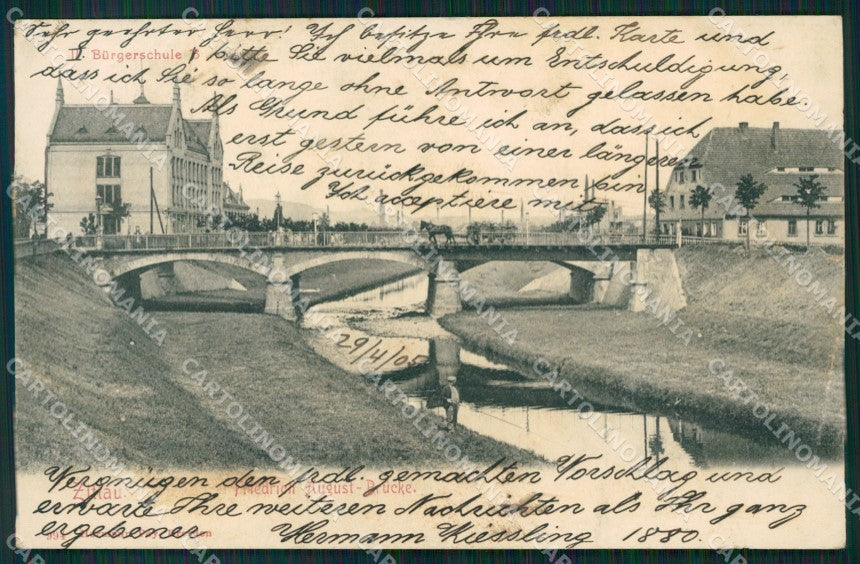 Sehr geehrter Herr! Ich besitze Ihre frdl. Karte und
II. Bürgerschule
bitte Sie vielmals um Entschuldigung
dass ich Sie so lange ohne Antwort gelassen habe.
Als Grund führe ich an, dass ich
erst gestern von einer längeren
Reise zurückgekommen bin
Ich acceptiere mit
29/4/05
Vergnügen den frdl. gemachten Vorschlag und
Zittau. Friedrich August-Brücke.
erwarte Ihre weiteren Nachrichten als Ihr ganz
ergebener Hermann Kiessling 1880.
CARTOLINOMANIA